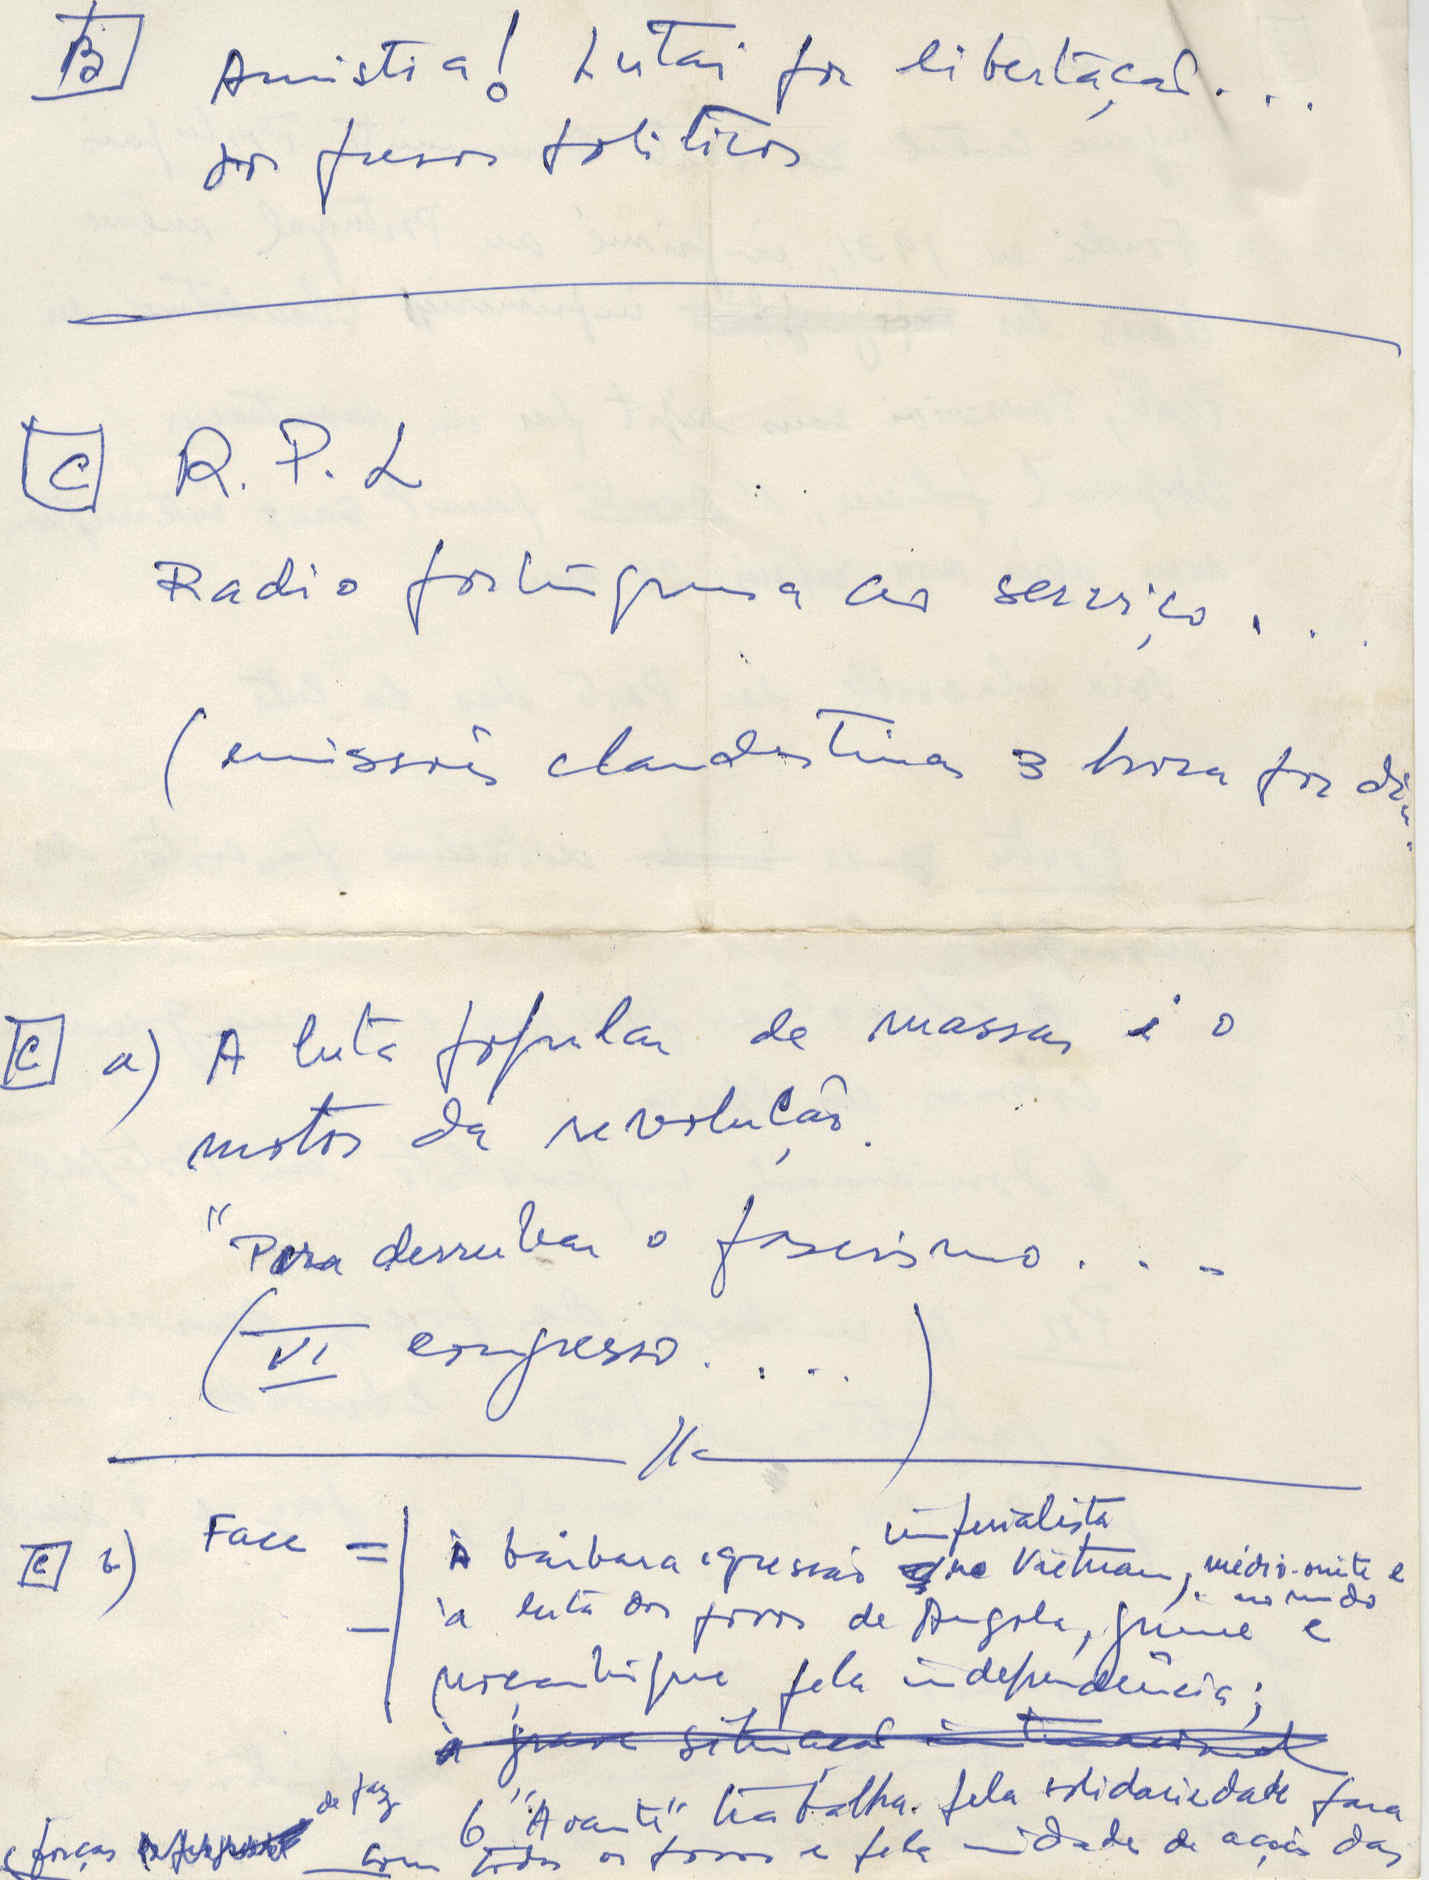 B Amnistia! Lutai por libertação...
dos presos politicos
C R.P.L
Radio portuguesa ao serviço...
(emissões clandestinas 3 hora por dia.
C a) A luta popular de massas é o
motor da revolução.
"Para derrubar o fascismo....
(VI congresso.....)
C b) Face = À bárbara agressão imperialista no Vietnam, médio-oriente e
no mundo
– à luta dos povos de Angola, Guiné e
moçambique pela independência;
à grave situação internacional
O "Avante" trabalha pela solidariedade para
com todos os povos e pela unidade de acção das
forças de paz